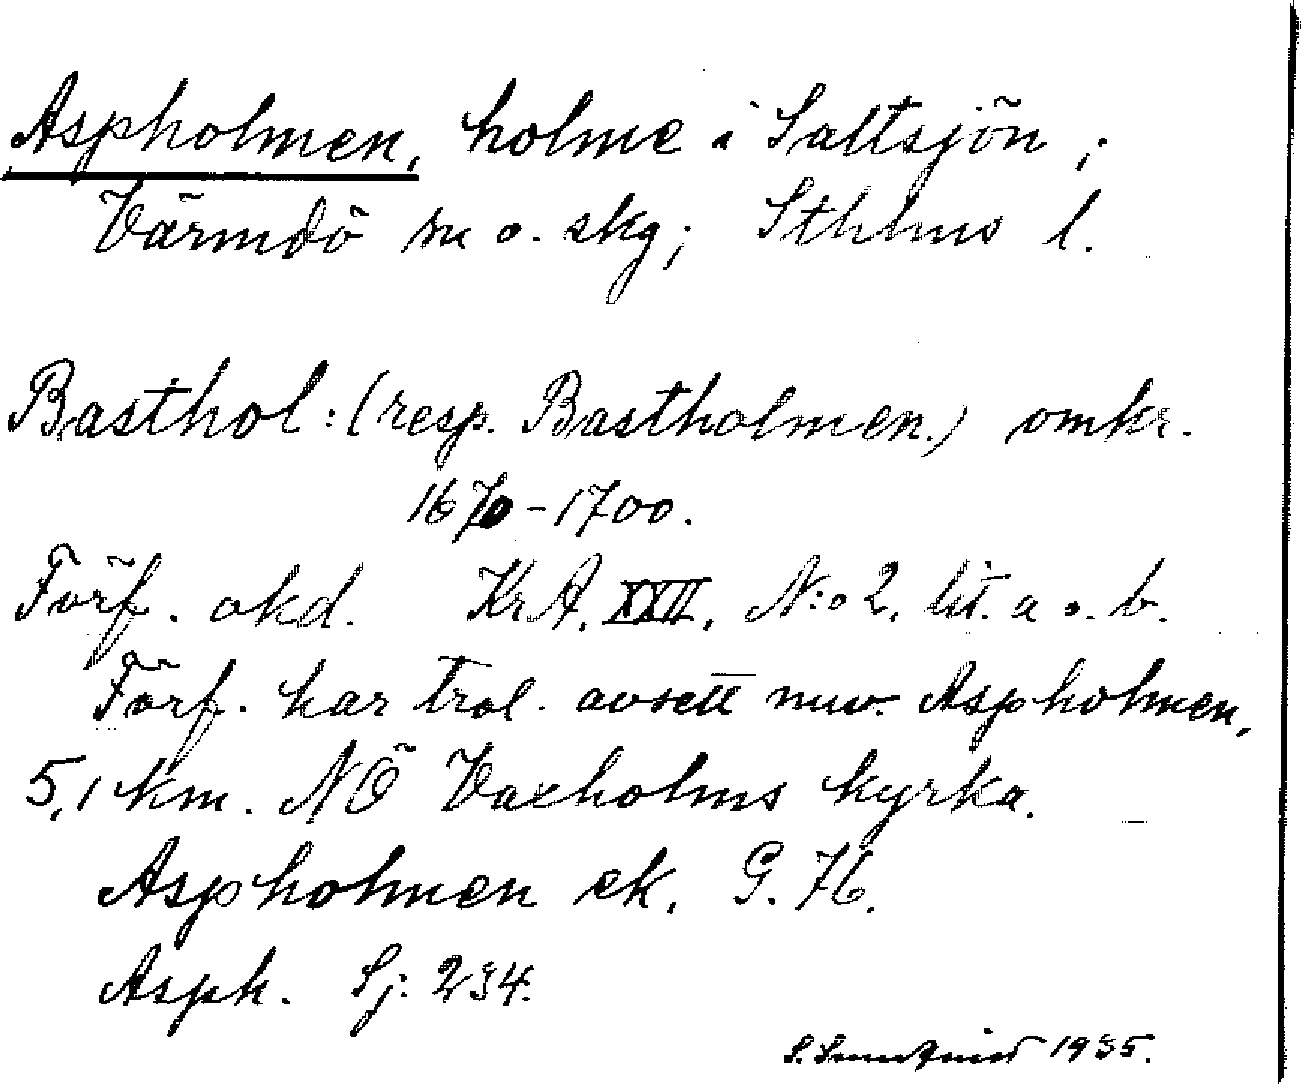 Aspholmen, holme i Saltsjön,
Värmdö sn o. skg; Sthlms l.
Basthol: (resp. Bastholmen.) omkr.
1670-1700.
Förf. okd. KrA. XXII, N:o 2, lit. a o. b.
Förf. har trol. avsett nuv. Aspholmen,
5,1 km. NÖ Vaxholms kyrka.
Aspholmen ek. G. 76.
Asph. Sj: 234.
S. 1935.